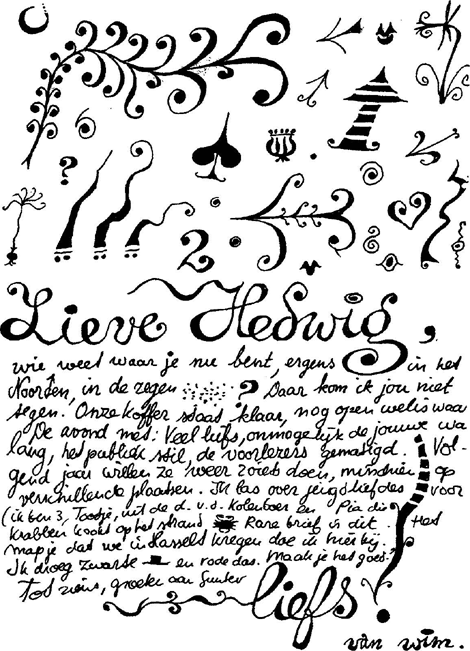 ?
2
Lieve Hedwig,
wie weet waar je nu bent, ergens in het
Noorden, in de regen ? Daar kom ik jou niet
tegen. Onze koffer staat klaar, nog open weliswaar
De avond met: Veel liefs, onmogelijk de jouwe wa
lang, het publiek stil, de voorlezers gematigd. Vol-
gend jaar willen ze weer zoiets doen, misschien op
verschillende plaatsen. Ik las over jeugdliefdes voor
(ik ben 3, Tootje, uit de d. v. s. Kolenboer en Pia die
krabben kookt op het strand Rare brief is dit. Het
mapje dat we in Hasselt kregen doe ik hier bij.
Ik droeg zwarte en rode das. Maak je het goed?
Tot ziens, groeten aan Gunter
liefs!
van wim.